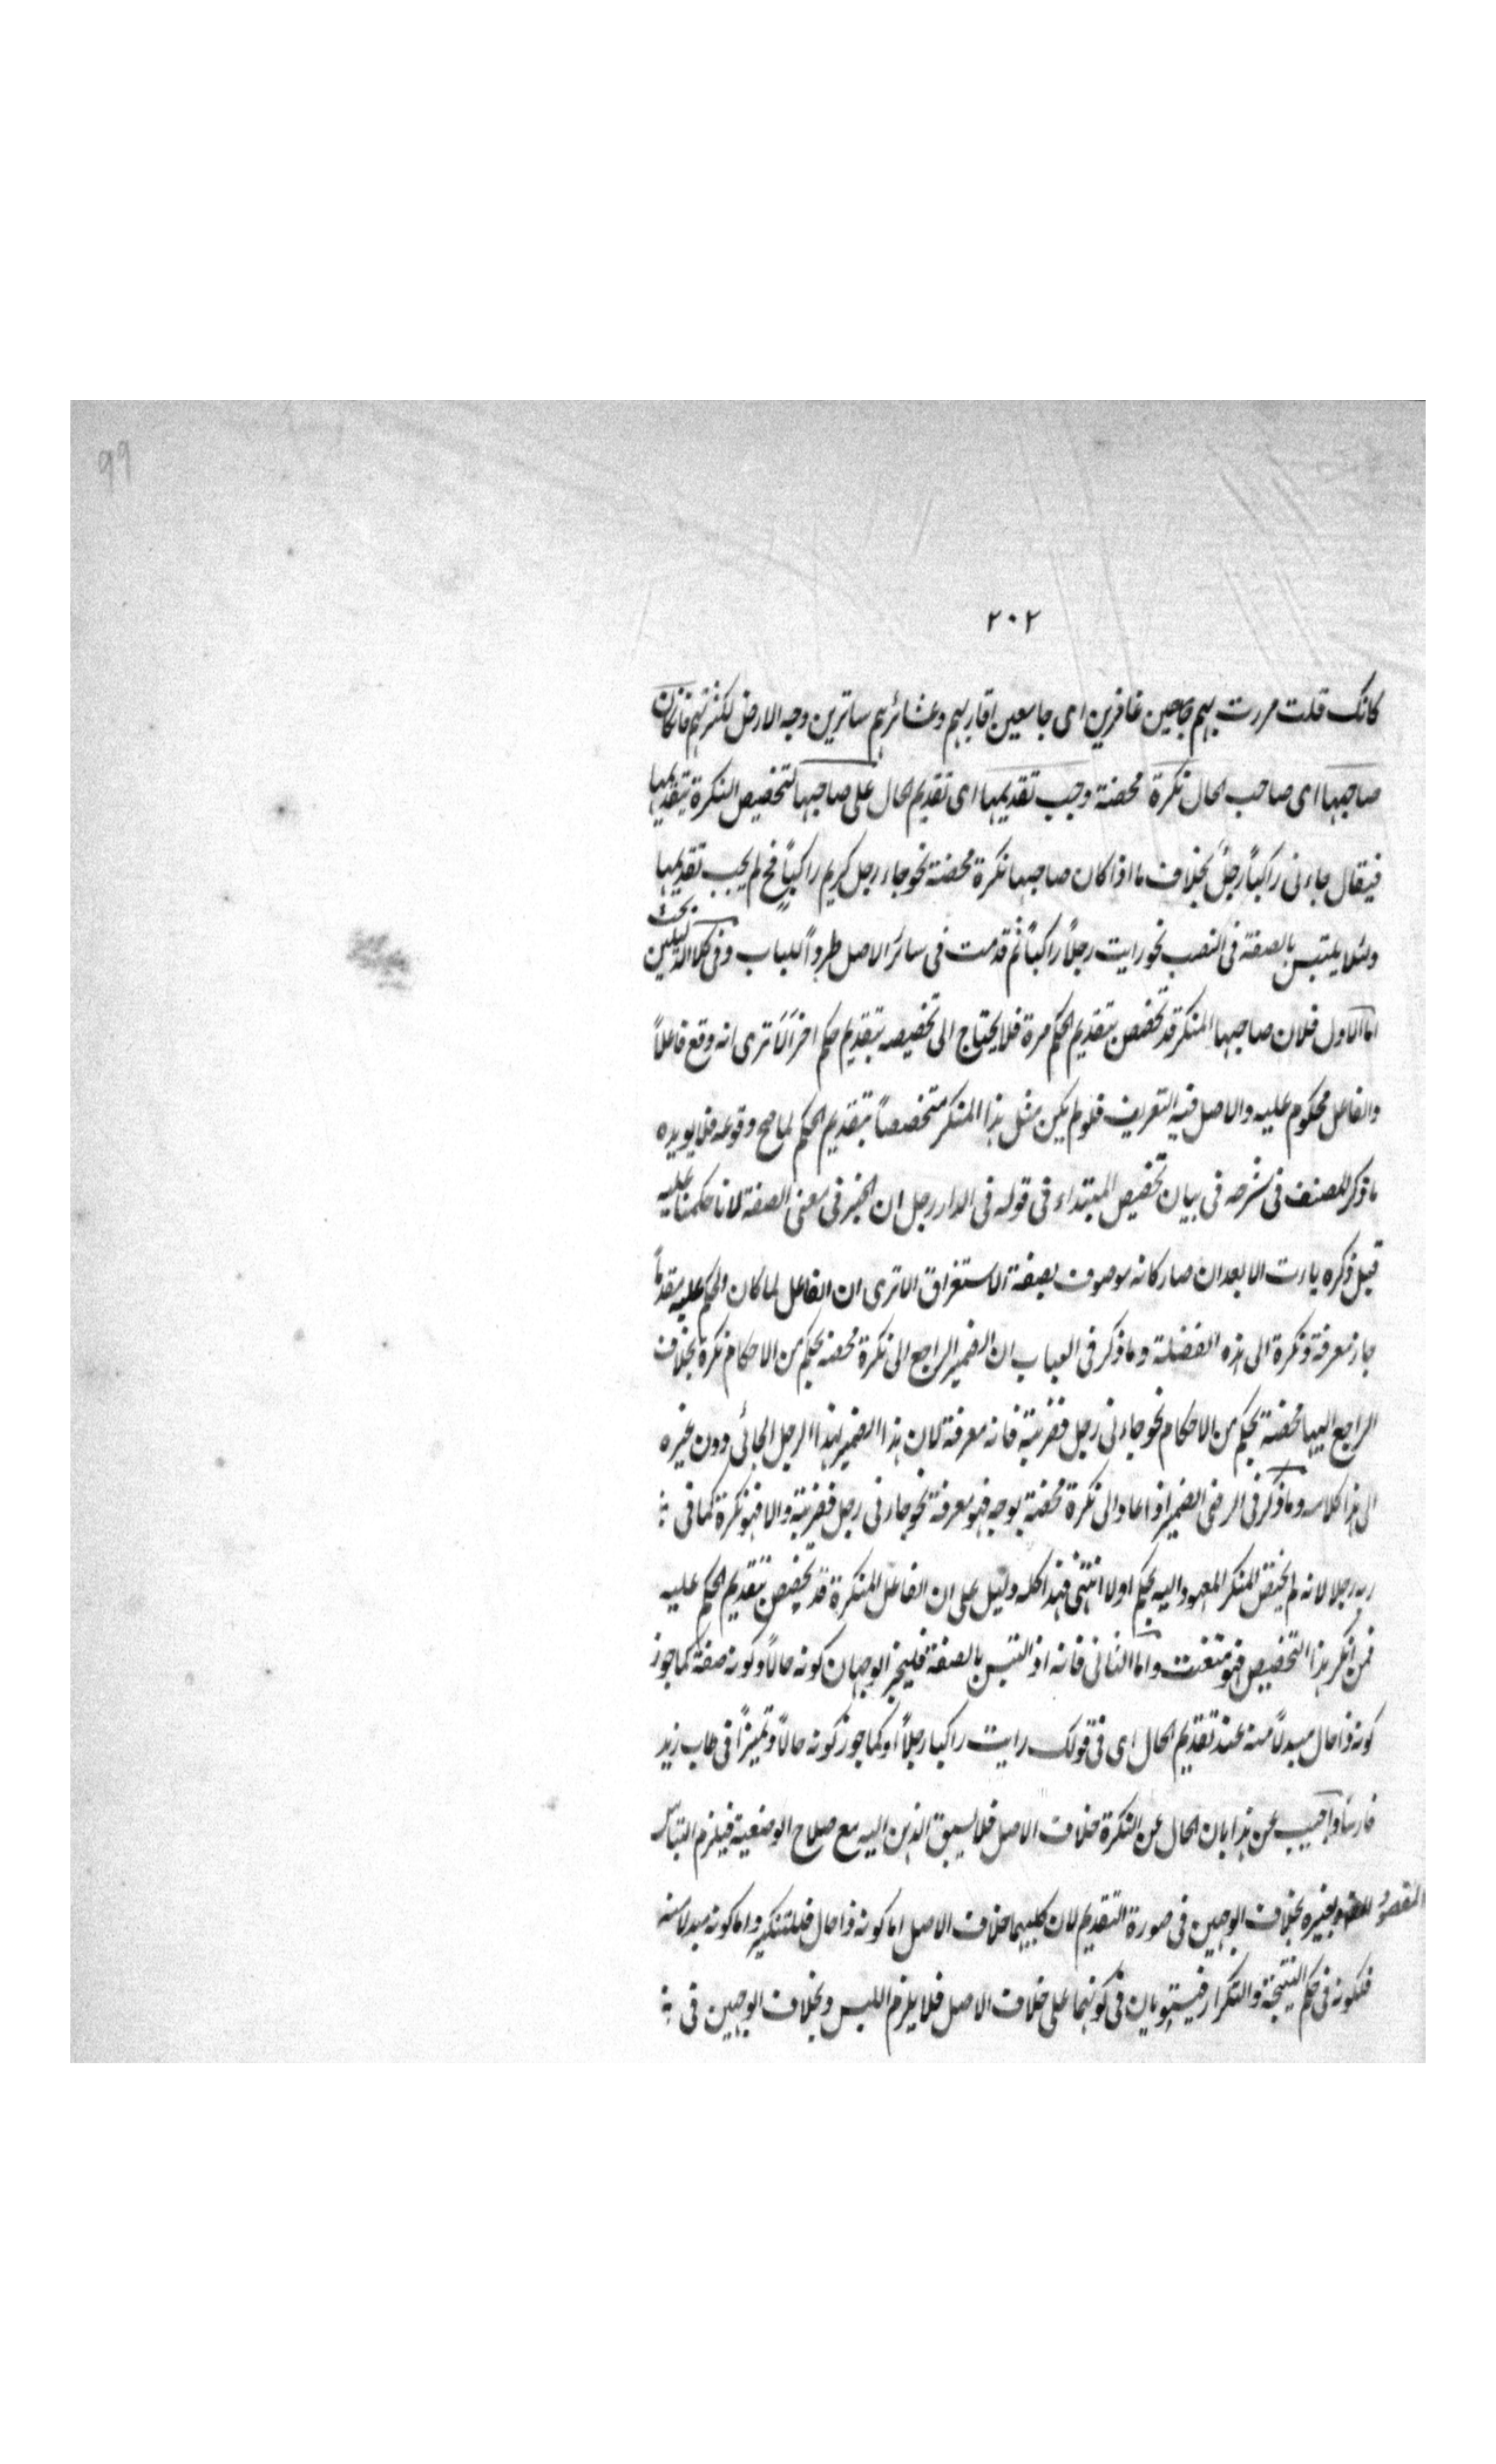 99
٢٠٢
كانك قلت مررت بهم جامعين غافرين اى جامعين اقاربهم وعشائرهم ساترين وجه الارض لكثرتهم فان كان
صاحبها اى صاحب الحال نكرة محضة وجب تقديمها اى تقديم الحال على صاحبها لتخصيص النكرة بتقديمها
فيقال جاءنى راكباً رجلٌ بخلاف ما اذا كان صاحبها نكرة محضة نحو جاء رجل كريم راكباً فح لم يجب تقديمها
ولئلا يلتبس بالصفة فى النصب نحو رايت رجلاً راكباً ثم قدمت فى سائر الاصل طرداً للباب وفى كلا الدليلين بحث
اما الاول فلان صاحبها المنكر قد تخصص بتقديم الحكم مرة فلا يحتاج الى تخصيصه بتقديم حكم اخر الا ترى انه وقع فاعلاً
والفاعل محكوم عليه والاصل فيه التعريف فلو لم يكن مثل هذا المنكر متخصصاً بتقديم الحكم لما صح وقوعه فلا يويده
ما ذكر المصنف فى شرحه فى بيان تخصيص المبتداء فى قوله فى الدار رجل ان الخبر فى معنى الصفة لانا حكمنا عليه
قبل ذكره الا بعد ان صار كانه موصوف بصفة الاستغراق الا ترى ان الفاعل لما كان الحكم عليه مقدماً
جاز معرفة ونكرة الى هذه الفضلة وما ذكر فى العباب ان الضمير الراجع الى نكرة محضة بحكم من الاحكام نكرة بخلاف
الراجع اليها محضة بحكم من الاحكام نحو جاءنى رجل فضربته فانه معرفة لان هذا الضمير لهذا الرجل الجائى دون غيره
الى هذا كلامه وما ذكر فى الرضى الضمير اذا عاد الى نكرة مختصة بوجه فهو معرفة نحو جاءنى رجل فضربته والا فهو نكرة كما فى
ربه رجلا لانه لم يختص المنكر المعهود اليه بحكم اولا انتهى فهذا كله دليل على ان الفاعل المنكرة قد تخصص بتقديم الحكم عليه
فمن انكر هذا التخصيص فهو متعنت واما الثانى فانه اذا التبس بالصفة فليجز الوجهان كونه حالاً وكونه صفة كما جوز
كونه ذا حال مبدلاً منه عند تقديم الحال اى فى قولك رايت راكبا رجلاً او كما جوز كونه حالاً وتميزاً فى طاب زيد
فارسا واجيب عن هذا بان الحال عن النكرة خلاف الاصل فلا يسبق الذهن اليه مع صلاح الوصفية فيلزم التباس
المقصود بغيره بخلاف الوجهين فى صورة التقديم لان كليهما خلاف الاصل اما كونه ذا حال فللتنكير واما كونه مبدلا منه
فلكونه فى حكم التنحية والتكرار فيستويان فى كونهما على خلاف الاصل فلا يلزم اللبس وبخلاف الوجهين فى